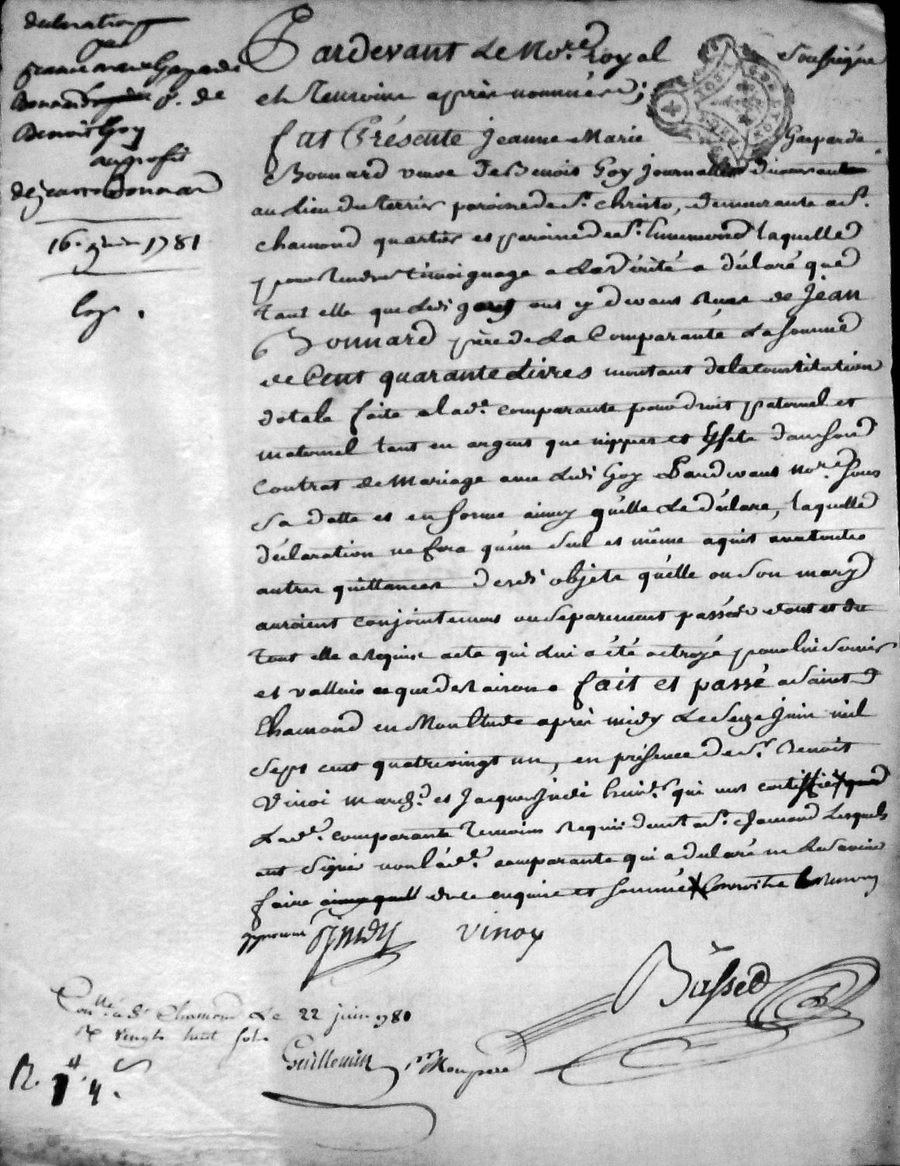 declaration
par
Jeanne marie Gasparde
Bonnard v. de
Benoit Goy
au profit
de jean Bonnard
16. juin 1781
Pardevant Le No.re royal Soussigné
et Temoins après nommés;
fut Présente Jeanne Marie Gasparde
Bonnard veuve de Benoit Goy journallier demeurant
au lieu du Terris paroisse de St. Christo, demeurante a St.
chamond quartier et paroisse de St. Ennemond laquelle
pour rendre témoignage a La Vérité a déclaré que
tant elle que ledi goy ont cy devant reçu de Jean
Bonnard père de La Comparante La somme
de Cent quarante Livres montant de la constitution
dotale faite a lad.e comparante pour droit paternel et
maternel tant en argent que nippes et effets dans son
Contrat de Mariage avec Ledi Goy Pardevant No.re sous
Sa datte et en forme ainsy qu'elle Le déclare, laquelle
déclaration ne fera qu'un seul et même aquit avec toutes
autres quittances desdi objets qu'elle ou son mary
auroient conjointement ou separement passées dont et du
tout elle a requis acte qui lui a été octroyé pour lui servir
et valloir ce que de raison. fait et passé a Saint
Chamond en Mon Etude après midy Le Seize Juin mil
Sept cent quatrevingt un, en présence de Sr. Benoit
Vinoi march.d et Jacques Jude qui nous
Lad.e comparante Temoins requis a St. chamond Lesquels
ont signé non lad.e comparante qui a déclaré ne Le savoir
faire de ce enquise et sommée
Vinoy
Basset
Con.llé a St Chamond Le 22 juin 1781
R vingt huit sols
Guillemin pr Mon pere
R. 1# 4 s